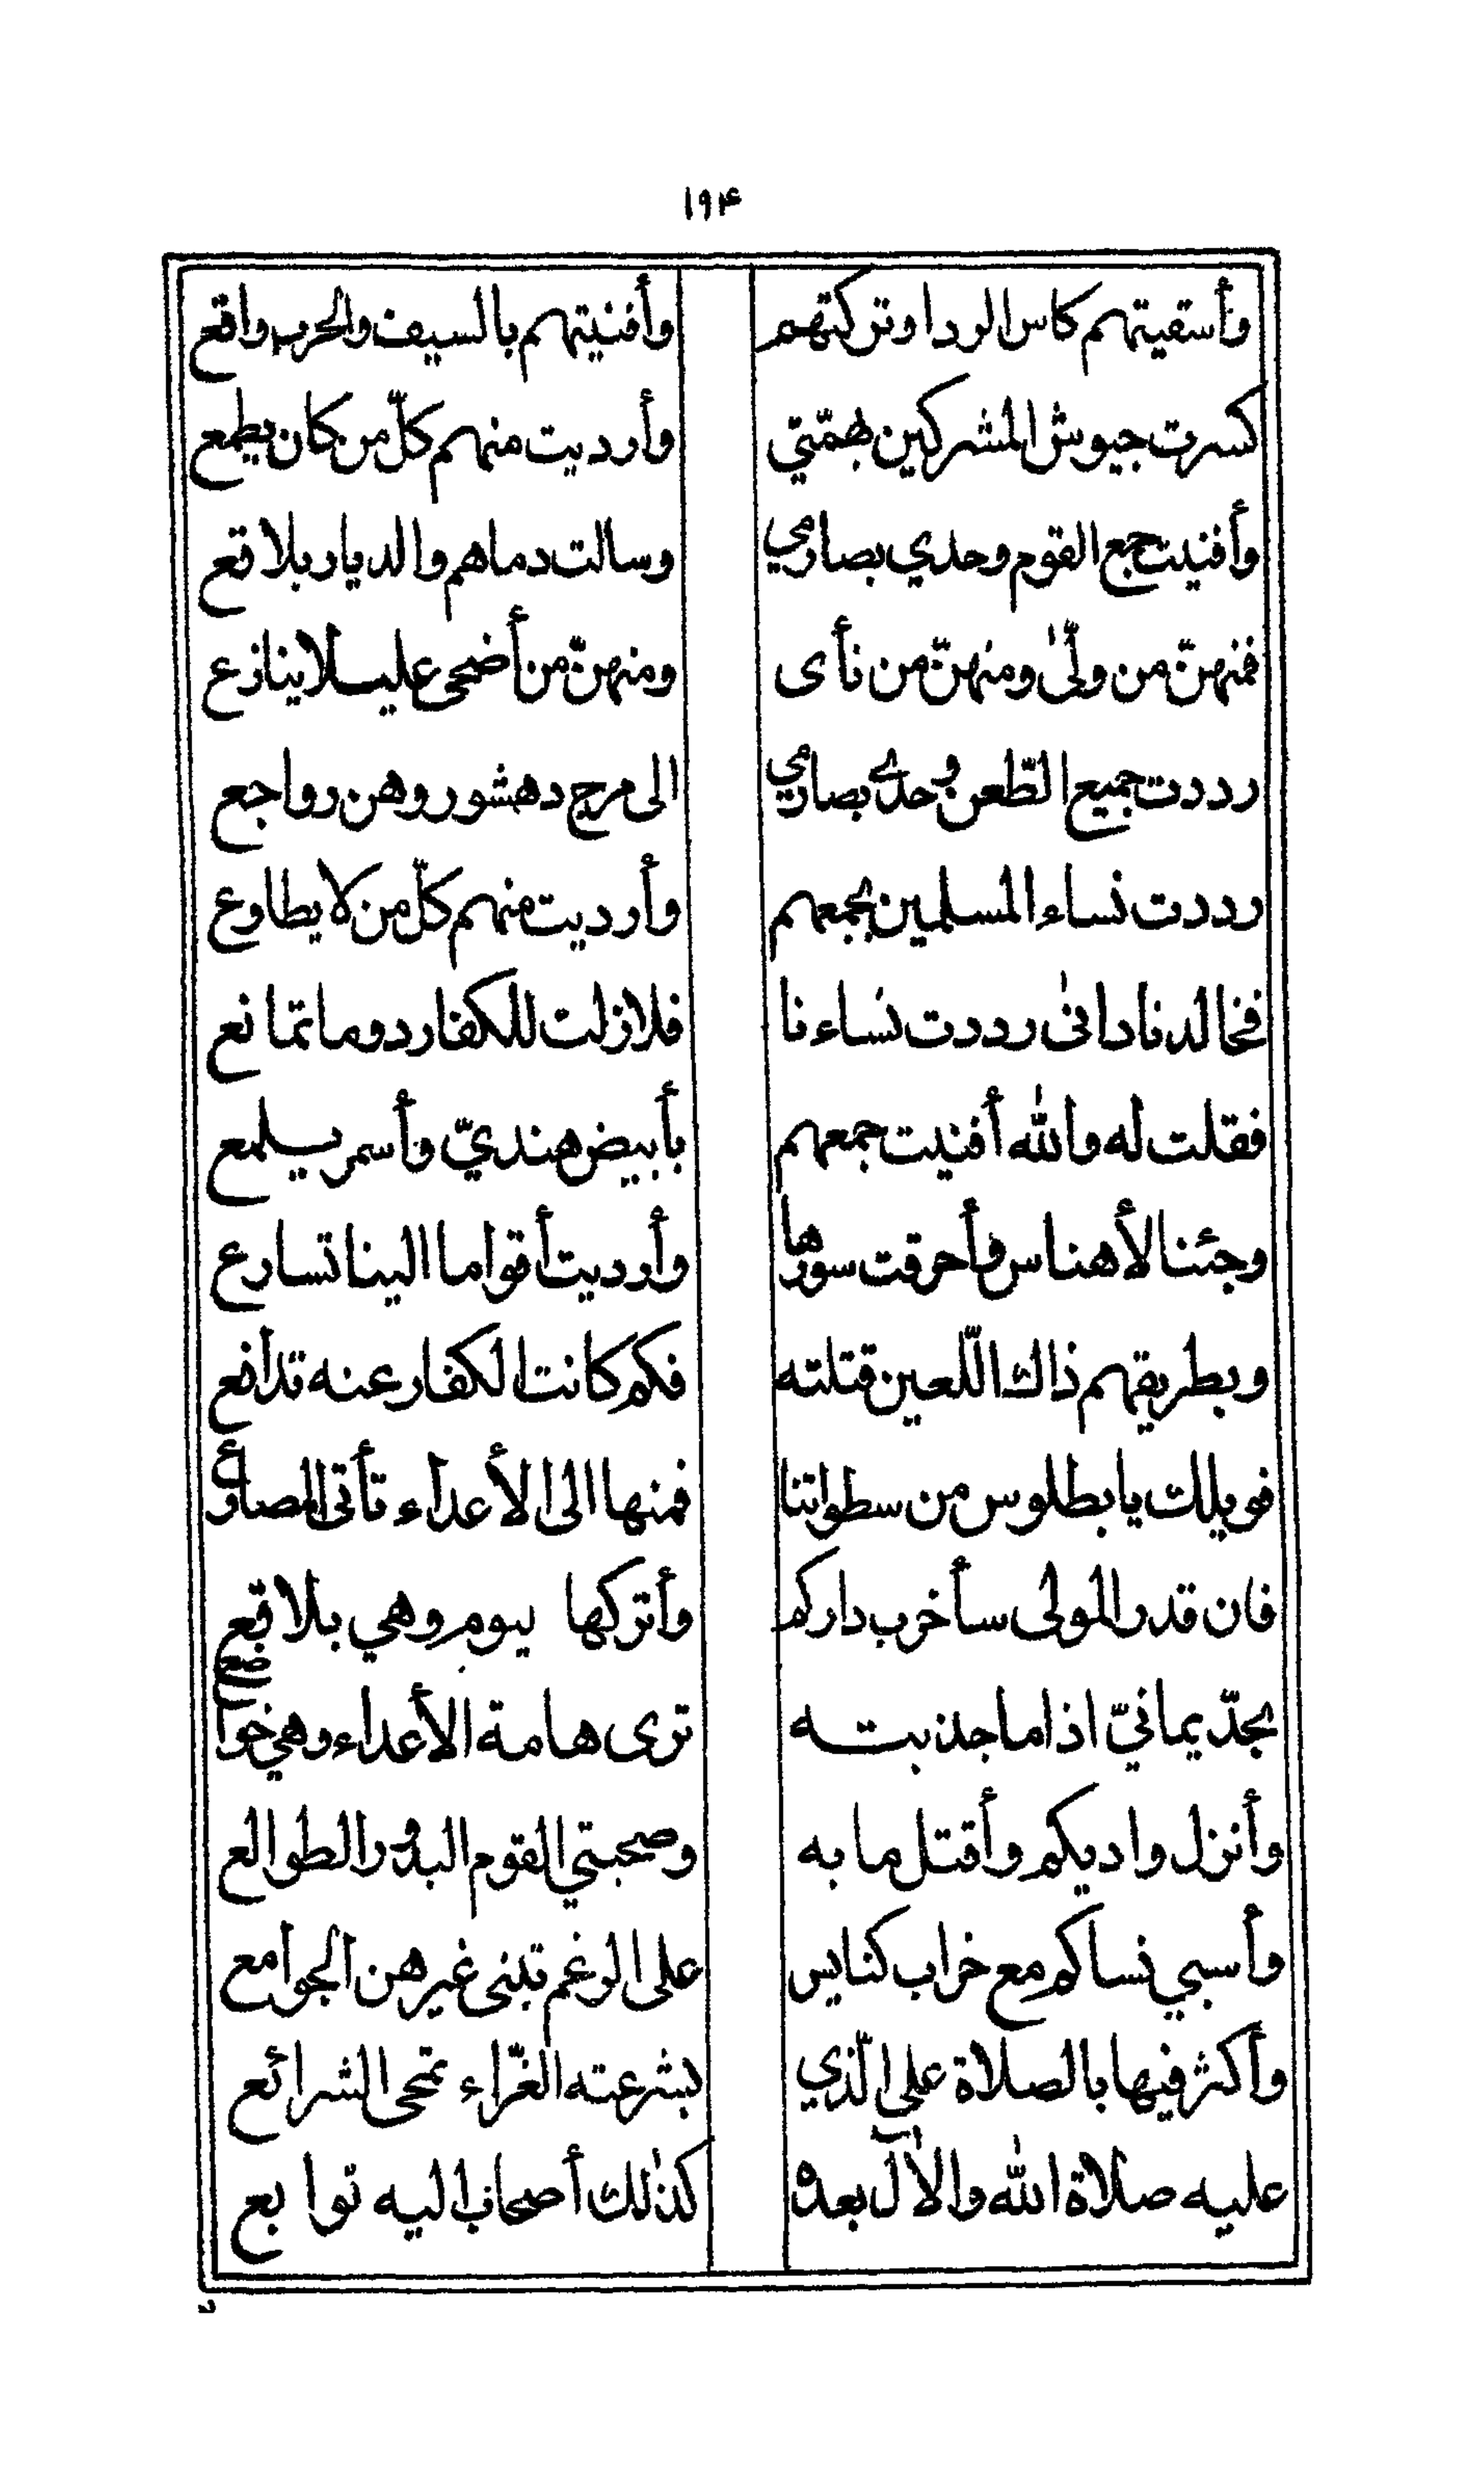 ۱۹۴
وأسقيتهم كاس الردا وتركتهم وأفنيتهم بالسيف والحرب واقع
كسرت جيوش المشركين بهمّتي وأرديت منهم كلّ من كان يطمع
وأفنيت جمع القوم وحدي بصارمي وسالت دماهم والديار بلاقع
فمنهنّ من ولّى ومنهنّ من نأى ومنهنّ من أضحى عليه لا ينازع
رددت جميع الظّعن وحدي بصارمي الى مرج دهشور وهن رواجع
رددت نساء المسلمين بجمعهم وأرديت منهم كلّ من لا يطاوع
فخالد نادانى رددت نساءنا فلا زلت للكفار دوما تمانع
فقلت له والله أفنيت جمعهم بأبيض هنديّ وأسمر يلمع
وجئنا لأهناس فأحرقت سورها وأرديت أقواما الينا تسارع
وبطريقهم ذاك اللّعين قتلته فكم كانت الكفار عنه تدافع
فويلك يا بطلوس من سطواتنا فمنها الى الأعداء تأتى المصارع
فان قدر المولى سأخرب داركم وأتركها يوم وهي بلاقع
بحدّ يمانيّ اذا ما جذبته ترى هامة الأعداء وهي خواضع
وأنزل واديكم وأقتل ما به وصحبتي القوم البدور الطوالع
وأسبي نساكم مع خراب كنايس على الرغم تبنى غيرهن الجوامع
وأكثر فيها بالصلاة على الّذي بشرعته الغرّاء تمحى الشرائع
عليه صلاة الله والآل بعده كذلك أصحاب اليه توابع